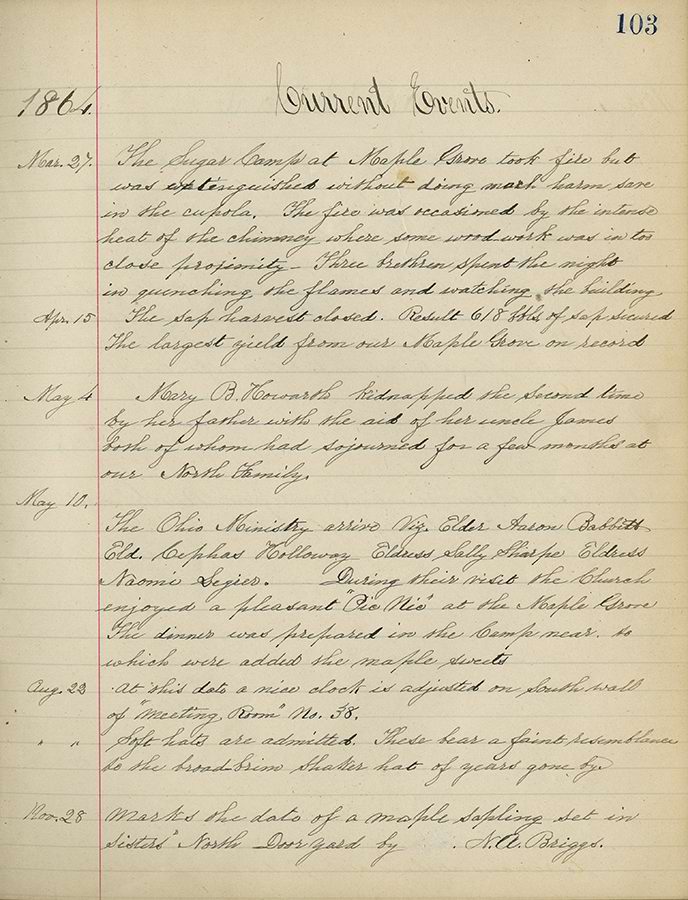 103
1864. Current Events.
Mar. 27. The Sugar Camp at Maple Grove took fire but
was extinguished without doing much harm save
in the cupola. The fire was occasioned by the intense
heat of the chimney where some wood-work was in too
close proximity - Three brethren spent the night
in quenching the flames and watching the building
Apr. 15 The sap harvest closed. Result 618 bbls. of sap secured
The largest yield from our Maple Grove on record
May 4 Mary B. Howarth kidnapped the second time
by her father with the aid of her uncle James
both of whom had sojourned for a few months at
our North Family.
May 10.
The Ohio Ministry arrive Viz. Elder Aaron Babbitt
Eld. Cephas Holloway Eldress Sally Sharpe Eldress
Naomi Legier. During their visit the Church
enjoyed a pleasant "Pic Nic" at the Maple Grove
The dinner was prepared in the Camp near. to
which were added the maple sweets
Aug. 23 At this date a nice clock is adjusted on South wall
of "Meeting Room" No. 38.
" " Soft hats are admitted. These bear a faint resemblance
to the broad-brim Shaker hat of years gone by.
Nov. 28 Marks the date of a maple sapling set in
Sisters' North Door yard by N. A. Briggs.